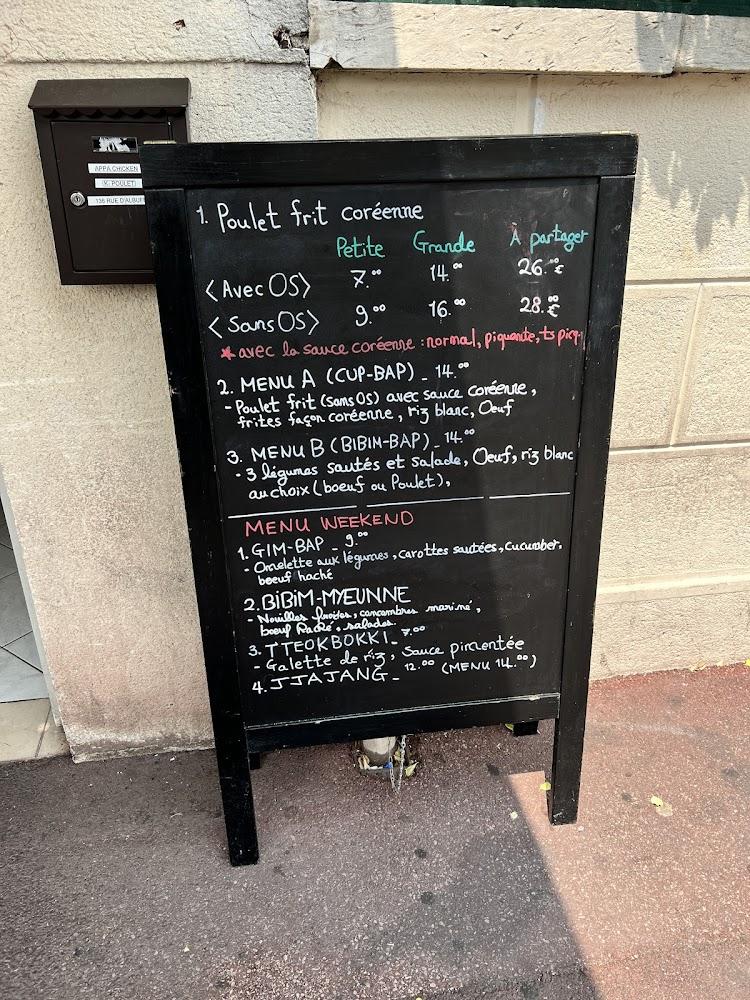 APPA CHICKEN
(K. POULET)
136 RUE D'ALBUF
1. Poulet frit coréenne
Petite Grande A partager
<Avec OS> 7.00 14.00 26.00€
<Sans OS> 9.00 16.00 28.00€
* avec la sauce coréenne : normal, piquante, ts piq.
2. MENU A (CUP-BAP) - 14.00
- Poulet frit (sans OS) avec sauce coréenne,
frites façon coréenne, riz blanc, Oeuf
3. MENU B (BIBIM-BAP) - 14.00
- 3 légumes sautés et salade, Oeuf, riz blanc
au choix (boeuf ou Poulet),
MENU WEEKEND
1. GIM-BAP - 9.00
- Omelette aux légumes, carottes sautées, cucumber,
boeuf haché
2. BIBIM-MYEUNNE
- Nouilles froides, concombres mariné,
boeuf haché, salades.
3. TTEOKBOKKI - 7.00
- Galette de riz, sauce pimentée
4. JJAJANG - 12.00 (MENU 14.00)